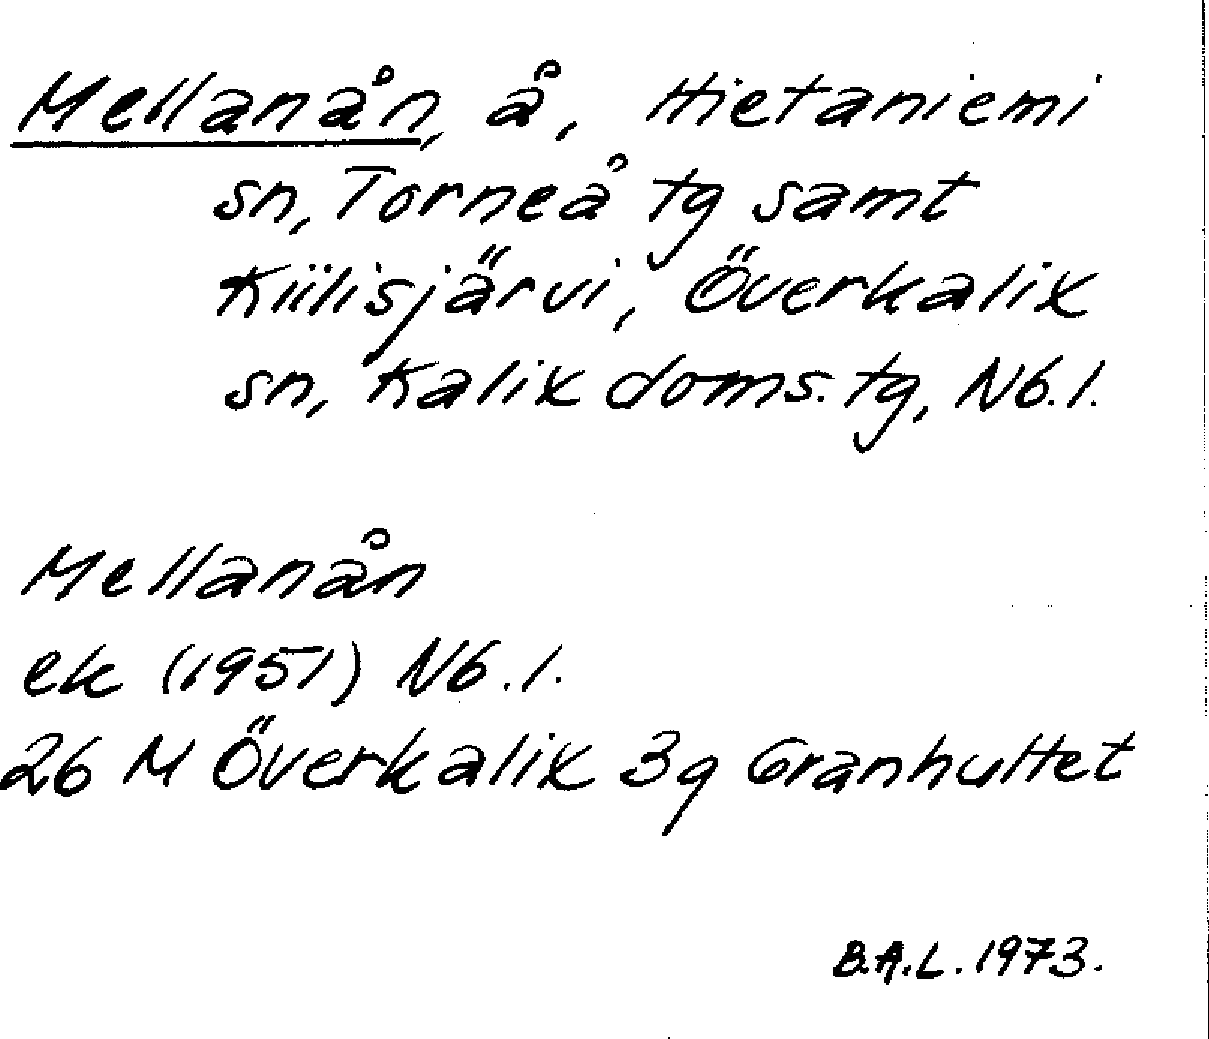 Mellanån, å, Hietaniemi
sn, Torneå tg samt
Kiilisjärvi, Överkalix
sn, Kalix doms. tg, Nb. l.
Mellanån
ek (1951) Nb. l.
26 M Överkalix 3g Granhultet
B.A.L. 1973.